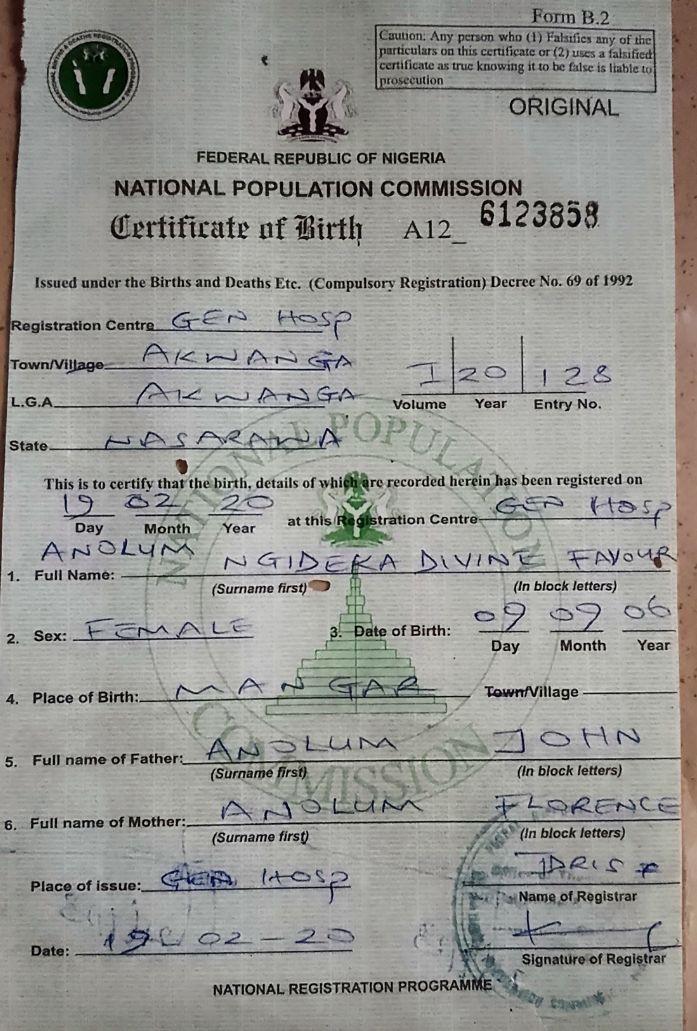 Form B.2
Caution: Any person who (1) Falsifies any of the
particulars on this certificate or (2) uses a falsified
certificate as true knowing it to be false is liable to
prosecution
ORIGINAL
FEDERAL REPUBLIC OF NIGERIA
NATIONAL POPULATION COMMISSION
Certificate of Birth A12_ 6123858
Issued under the Births and Deaths Etc. (Compulsory Registration) Decree No. 69 of 1992
Registration Centre GEN HOSP
Town/Village AKWANGA
I 20 128
L.G.A AKWANGA
Volume Year Entry No.
State NASARAWA
NATIONAL POPULATION COMMISSION
This is to certify that the birth, details of which are recorded herein has been registered on
19 02 20 at this Registration Centre GEN HOSP
Day Month Year
1. Full Name: ANOLUM NGIDEKA DIVINE FAVOUR
(Surname first) (In block letters)
2. Sex: FEMALE 3. Date of Birth: 09 09 06
Day Month Year
4. Place of Birth: MANGAR Town/Village
5. Full name of Father: ANOLUM JOHN
(Surname first) (In block letters)
6. Full name of Mother: ANOLUM FLORENCE
(Surname first) (In block letters)
Place of issue: GEN HOSP IDRIS
Name of Registrar
Date: 19-02-20
Signature of Registrar
NATIONAL REGISTRATION PROGRAMME